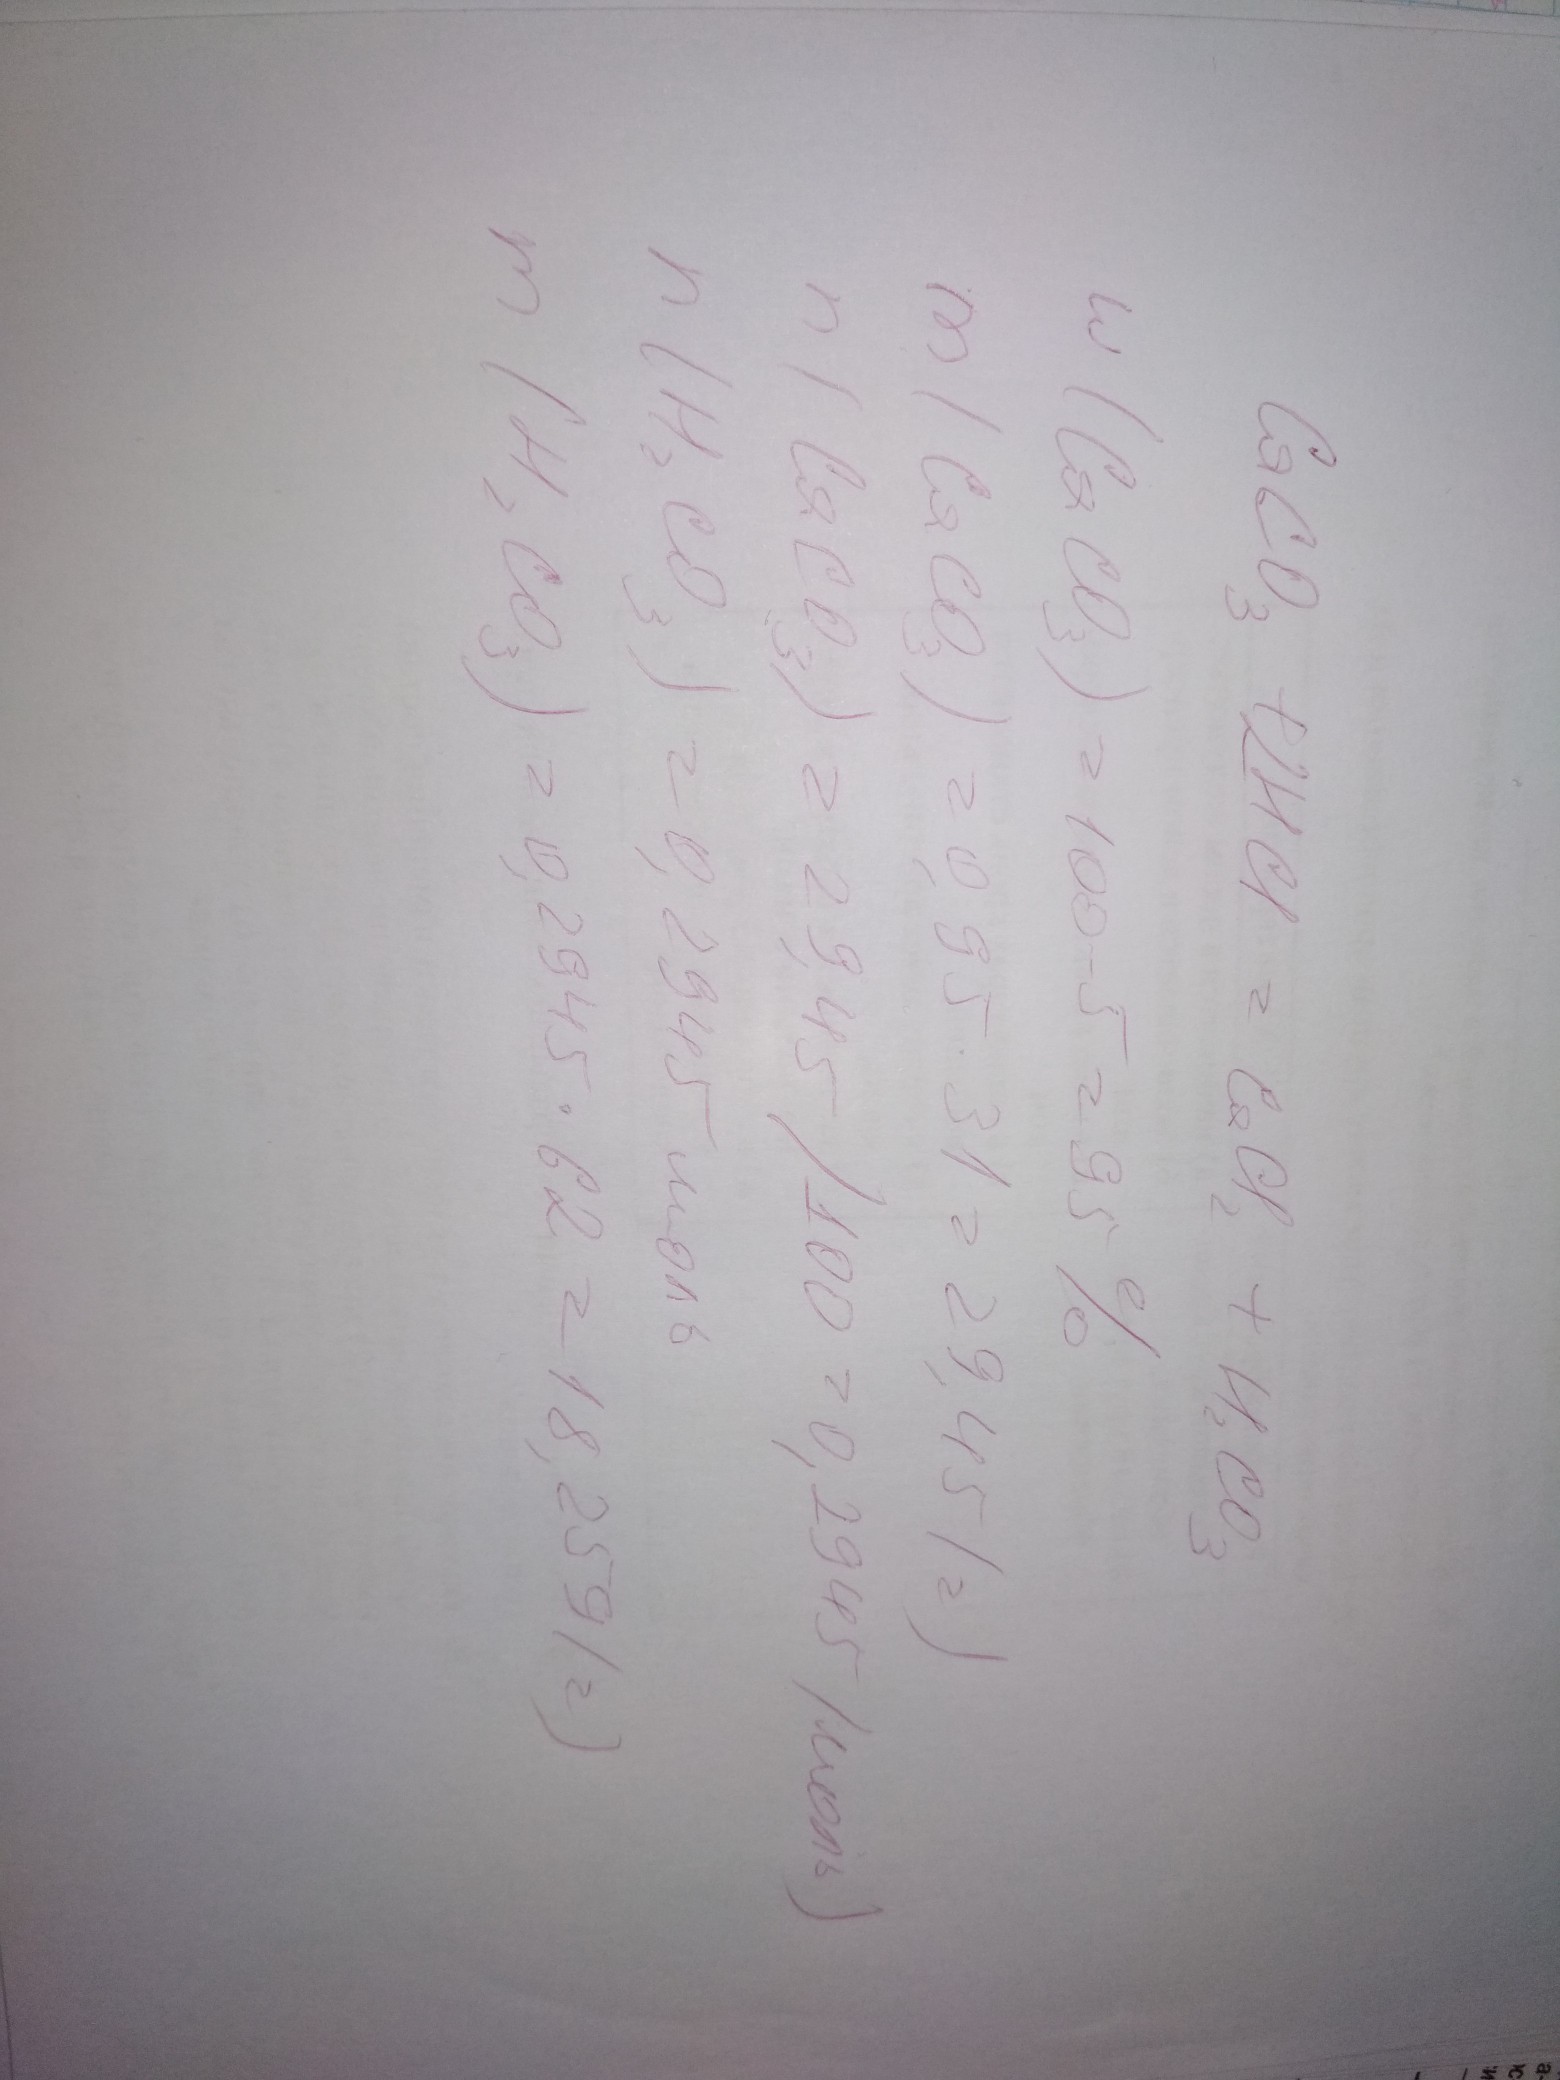 CaCO₃ + 2HCl = CaCl₂ + H₂CO₃
w (CaCO₃) = 100-5 = 95 %
m (CaCO₃) = 0,95 · 31 = 29,45 (г)
n (CaCO₃) = 29,45/100 = 0,2945 (моль)
n (H₂CO₃) = 0,2945 моль
m (H₂CO₃) = 0,2945 · 62 = 18,259 (г)